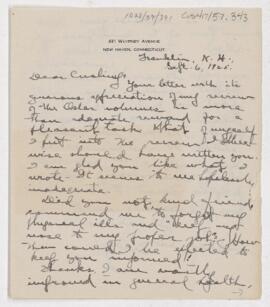 CUS417/57.343
881 WHITNEY AVENUE
NEW HAVEN, CONNECTICUT
Franklin, N. H.
Sept. 6, 1925.
Dear Cushing:
Your letter with its
generous appreciation of my review
of the Osler volumes is more
than adequate reward for a
pleasant task. What of myself
I put into the review I
wise should have written you.
I am glad you like what I
wrote. It seems to me hopelessly
inadequate.
Did you not, kind friend,
command me to forget my
physical ills and keep my
nose to my proper job? How
then could I be expected to
keep you informed?
Thanks, I am vastly
improved in general health.